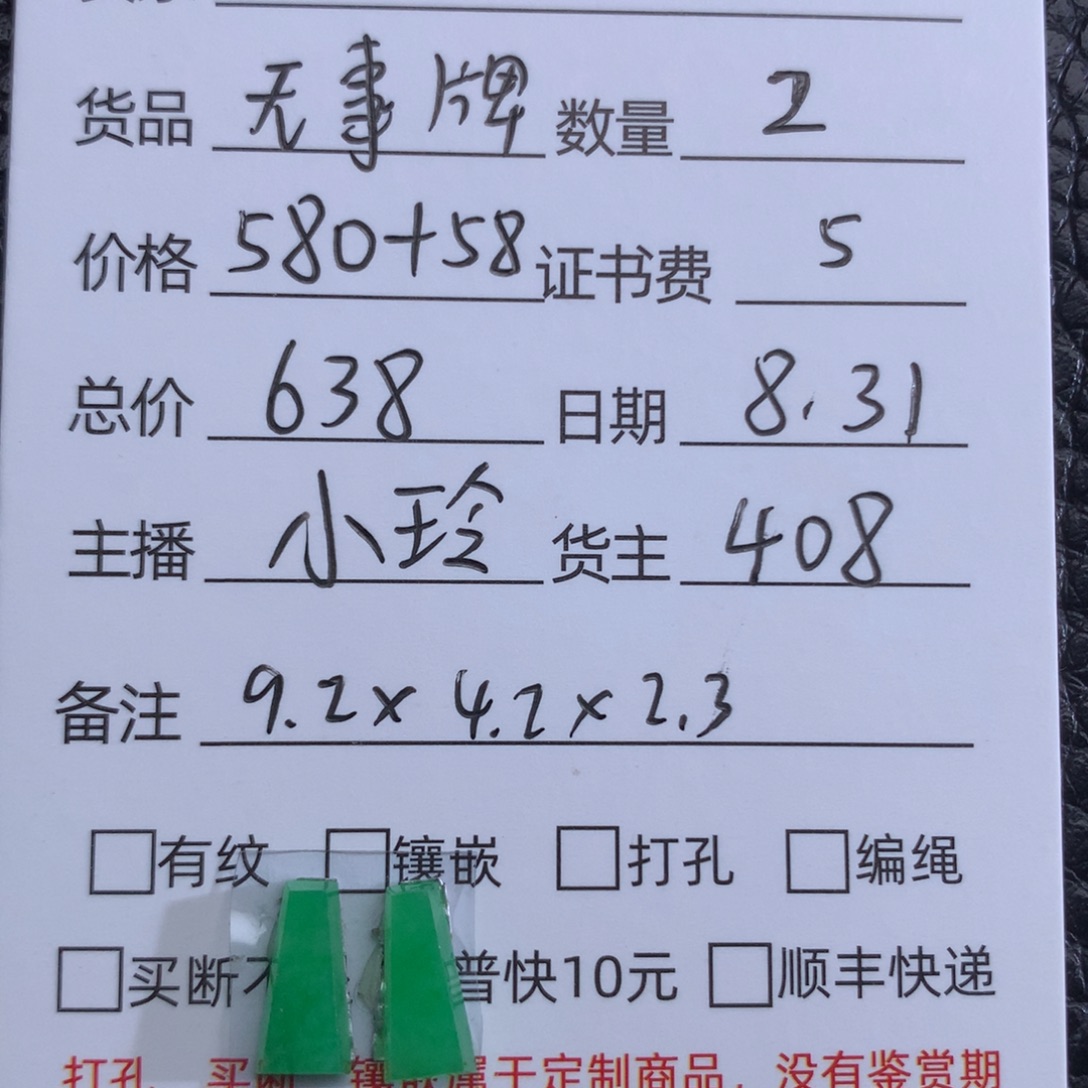 货品 无事牌 数量 2
价格 580+58 证书费 5
总价 638 日期 8.31
主播 小玲 货主 408
备注 9.2x4.2x2.3
有纹 镶嵌 打孔 编绳
买断不 普快10元 顺丰快递
打孔、买断、镶嵌属于定制商品，没有鉴赏期